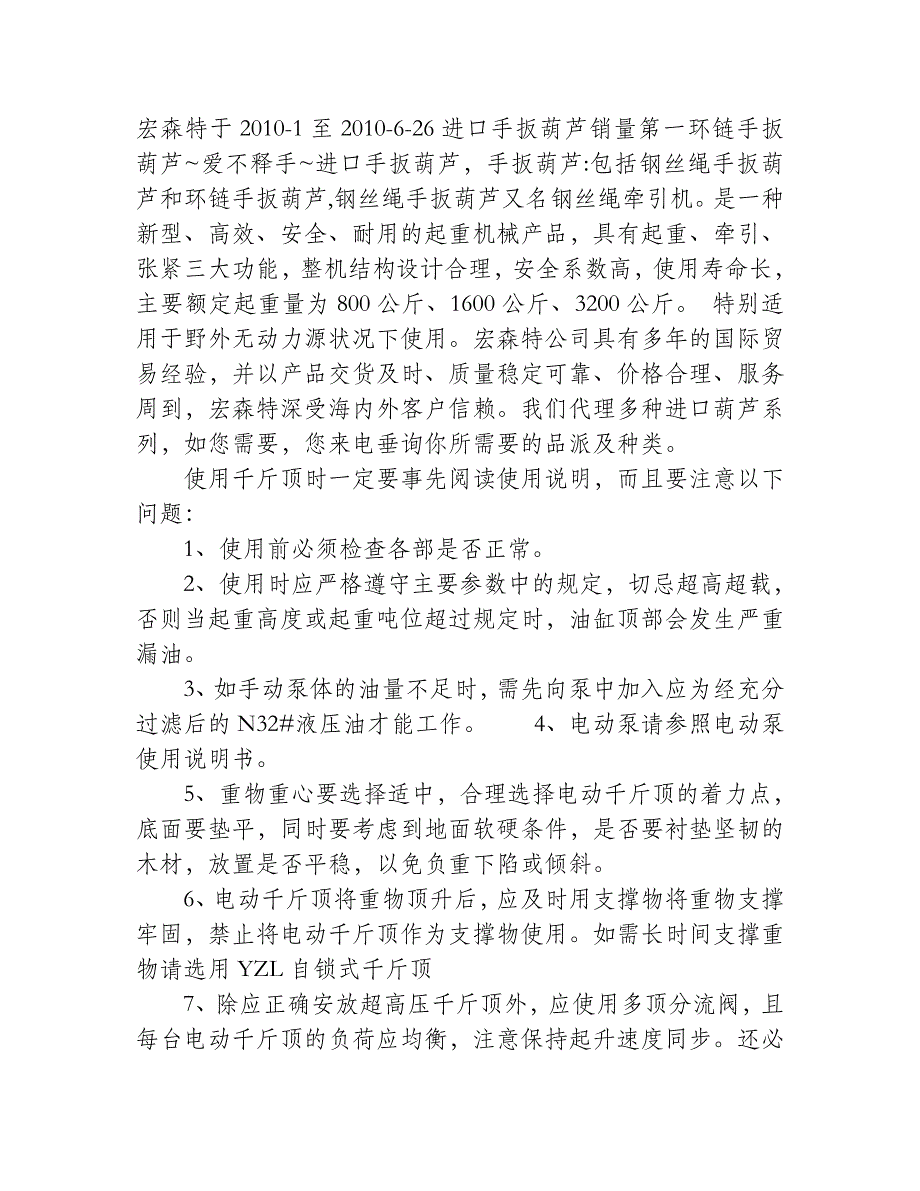 宏森特于 2010-1 至 2010-6-26 进口手扳葫芦销量第一环链手扳
葫芦~爱不释手~进口手扳葫芦，手扳葫芦:包括钢丝绳手扳葫
芦和环链手扳葫芦,钢丝绳手扳葫芦又名钢丝绳牵引机。是一种
新型、高效、安全、耐用的起重机械产品，具有起重、牵引、
张紧三大功能，整机结构设计合理，安全系数高，使用寿命长，
主要额定起重量为 800 公斤、1600 公斤、3200 公斤。 特别适
用于野外无动力源状况下使用。宏森特公司具有多年的国际贸
易经验，并以产品交货及时、质量稳定可靠、价格合理、服务
周到，宏森特深受海内外客户信赖。我们代理多种进口葫芦系
列，如您需要，您来电垂询你所需要的品派及种类。
使用千斤顶时一定要事先阅读使用说明，而且要注意以下
问题：
1、使用前必须检查各部是否正常。
2、使用时应严格遵守主要参数中的规定，切忌超高超载，
否则当起重高度或起重吨位超过规定时，油缸顶部会发生严重
漏油。
3、如手动泵体的油量不足时，需先向泵中加入应为经充分
过滤后的 N32#液压油才能工作。 4、电动泵请参照电动泵
使用说明书。
5、重物重心要选择适中，合理选择电动千斤顶的着力点，
底面要垫平，同时要考虑到地面软硬条件，是否要衬垫坚韧的
木材，放置是否平稳，以免负重下陷或倾斜。
6、电动千斤顶将重物顶升后，应及时用支撑物将重物支撑
牢固，禁止将电动千斤顶作为支撑物使用。如需长时间支撑重
物请选用 YZL 自锁式千斤顶
7、除应正确安放超高压千斤顶外，应使用多顶分流阀，且
每台电动千斤顶的负荷应均衡，注意保持起升速度同步。还必